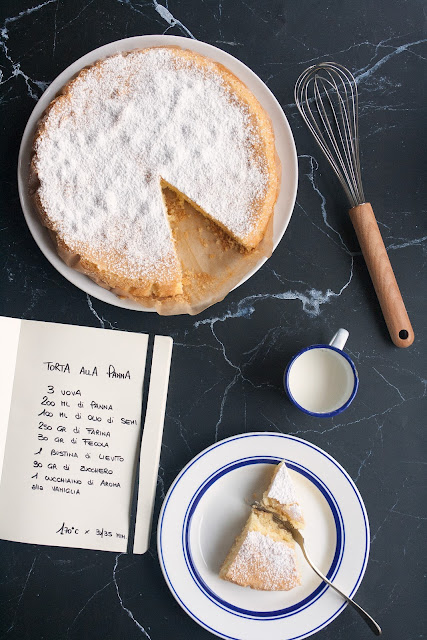 TORTA ALLA PANNA
3 UOVA
200 ML di PANNA
100 ML di OLIO di SEMI
250 GR di FARINA
50 GR di FECOLA
1 BUSTINA di LIEVITO
90 GR di ZUCCHERO
1 CUCCHIAINO di AROMA
alla VANIGLIA
170°C x 30/35 MIN.